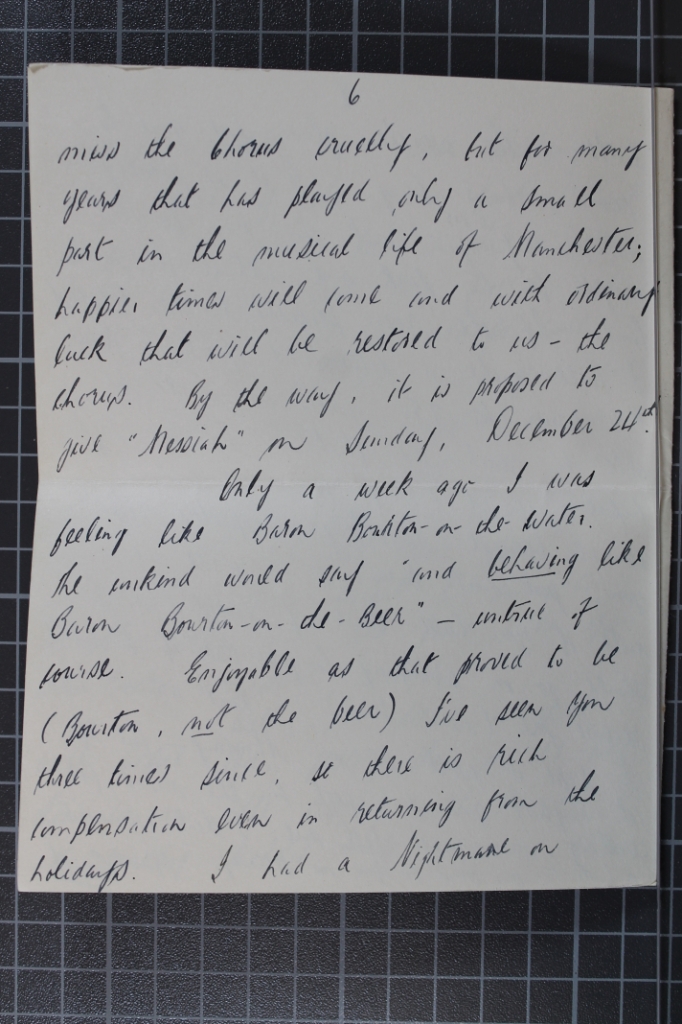 6
miss the Chorus cruelly, but for many
years that has played only a small
part in the musical life of Manchester;
happier times will come and with ordinary
luck that will be restored to us - the
chorus. By the way, it is proposed to
give "Messiah" on Sunday, December 24th.
Only a week ago I was
feeling like Baron Bourton-on-the-Water.
The unkind would say "and behaving like
Baron Bourton-on-the-Beer" - untrue of
course. Enjoyable as that proved to be
(Bourton, not the beer) I've seen you
three times since, so there is rich
compensation even in returning from the
holidays. I had a Nightmare on